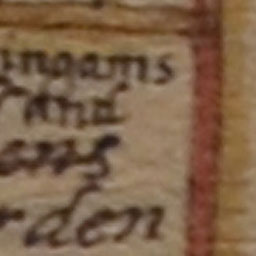 ungams
rand
ens
rden